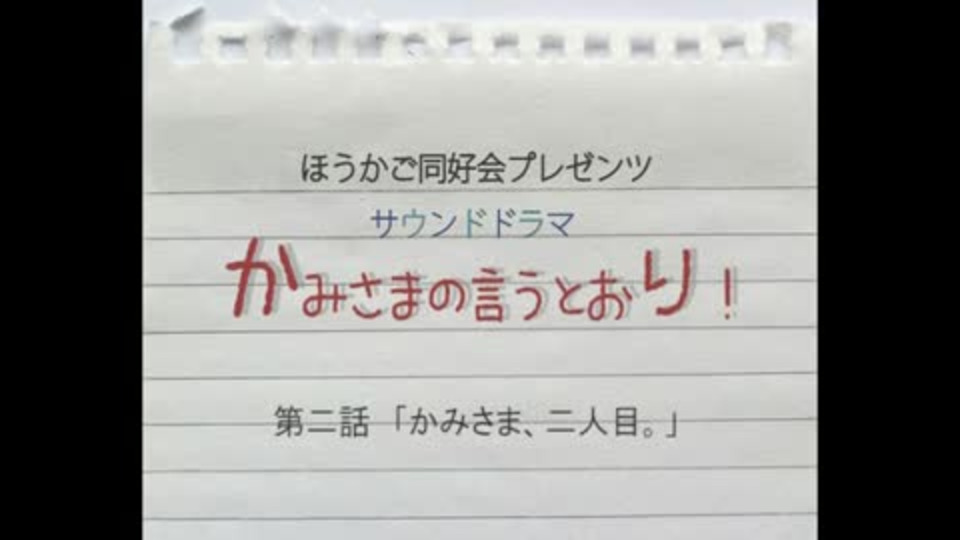 ほうかご同好会プレゼンツ
サウンドドラマ
かみさまの言うとおり！
第二話 「かみさま、二人目。」